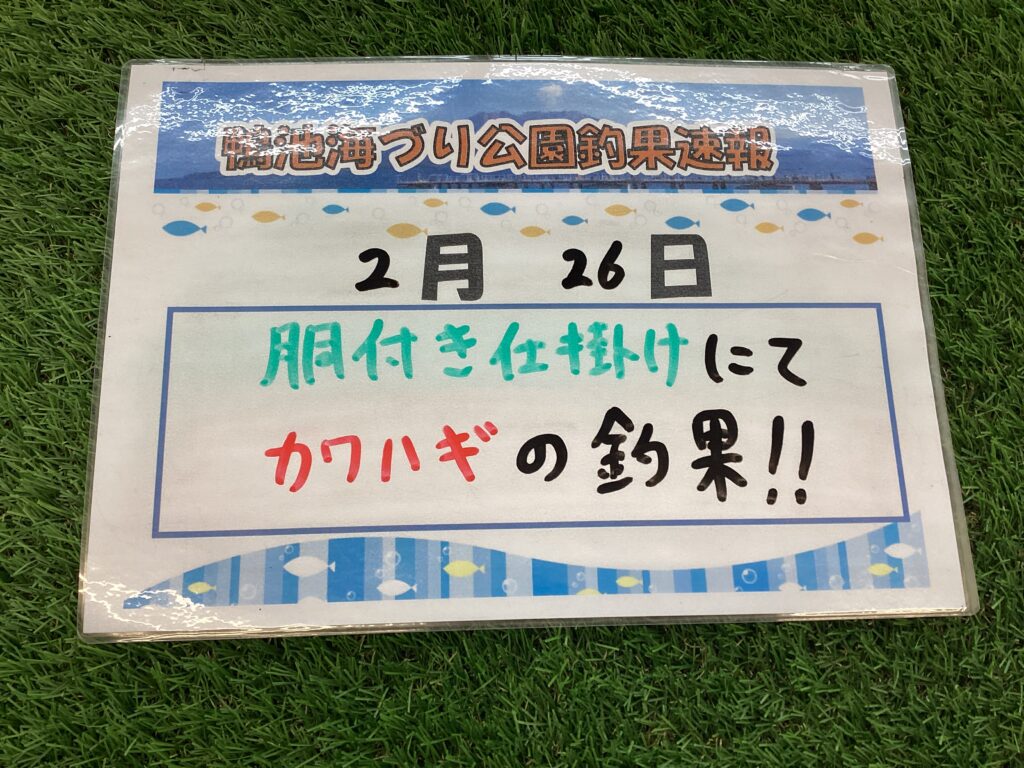 鴨池海づり公園釣果速報
2月 26日
胴付き仕掛けにて
カワハギの釣果!!